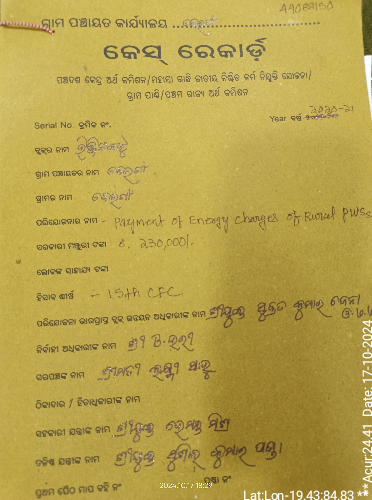 44088150
ଗ୍ରାମ ପଞ୍ଚାୟତ କାର୍ଯ୍ୟାଳୟ
କେସ୍ ରେକାର୍ଡ଼
ପଞ୍ଚଦଶ କେନ୍ଦ୍ର ଅର୍ଥ କମିଶନ/ମହାତ୍ମା ଗାନ୍ଧି ଜାତୀୟ ନିଶ୍ଚିତ କର୍ମ ନିଯୁକ୍ତି ଯୋଜନା/
ଗ୍ରାମ ପାଣ୍ଠି/ପଞ୍ଚମ ରାଜ୍ୟ ଅର୍ଥ କମିଶନ
2020-21
Serial No. କ୍ରମିକ ନଂ. Year ବର୍ଷ
ବ୍ଲକ୍‌ର ନାମ
ଗ୍ରାମ ପଞ୍ଚାୟତର ନାମ
ଗ୍ରାମର ନାମ
ପରିଯୋଜନାର ନାମ - Payment of Energy charges of Rural PWSs
ସରକାରୀ ମଞ୍ଜୁରୀ ଟଙ୍କା ₹. 230,000/-
ଲୋକଙ୍କ ସାହାଯ୍ୟ ଟଙ୍କା
ହିସାବ ଶୀର୍ଷ - 15th CFC
ପରିଯୋଜନା ଭାରପ୍ରାପ୍ତ ବ୍ଲକ୍ ଉନ୍ନୟନ ଅଧିକାରୀଙ୍କ ନାମ ଶ୍ରୀଯୁକ୍ତ ସୁବ୍ରତ କୁମାର ଜେନା
ନିର୍ବାହୀ ଅଧିକାରୀଙ୍କ ନାମ ଶ୍ରୀ B.
ସରପଞ୍ଚଙ୍କ ନାମ ଶ୍ରୀମତୀ ଲକ୍ଷ୍ମୀ ସାହୁ
ଠିକାଦାର / ହିତାଧିକାରୀଙ୍କ ନାମ
ସହକାରୀ ଯନ୍ତ୍ରୀଙ୍କ ନାମ ଶ୍ରୀଯୁକ୍ତ ହେମନ୍ତ ମିଶ୍ର
କନିଷ୍ଠ ଯନ୍ତ୍ରୀଙ୍କ ନାମ ଶ୍ରୀଯୁକ୍ତ ସୁଶିଲ୍ କୁମାର ପଣ୍ଡା
ପ୍ରଥମ ପୈଠ ମାପ ବହି ନଂ ପୃଷ୍ଠା ନଂ
Lat:Lon-19.43:84.83
**Acur:24.41 Date: 17-10-2024